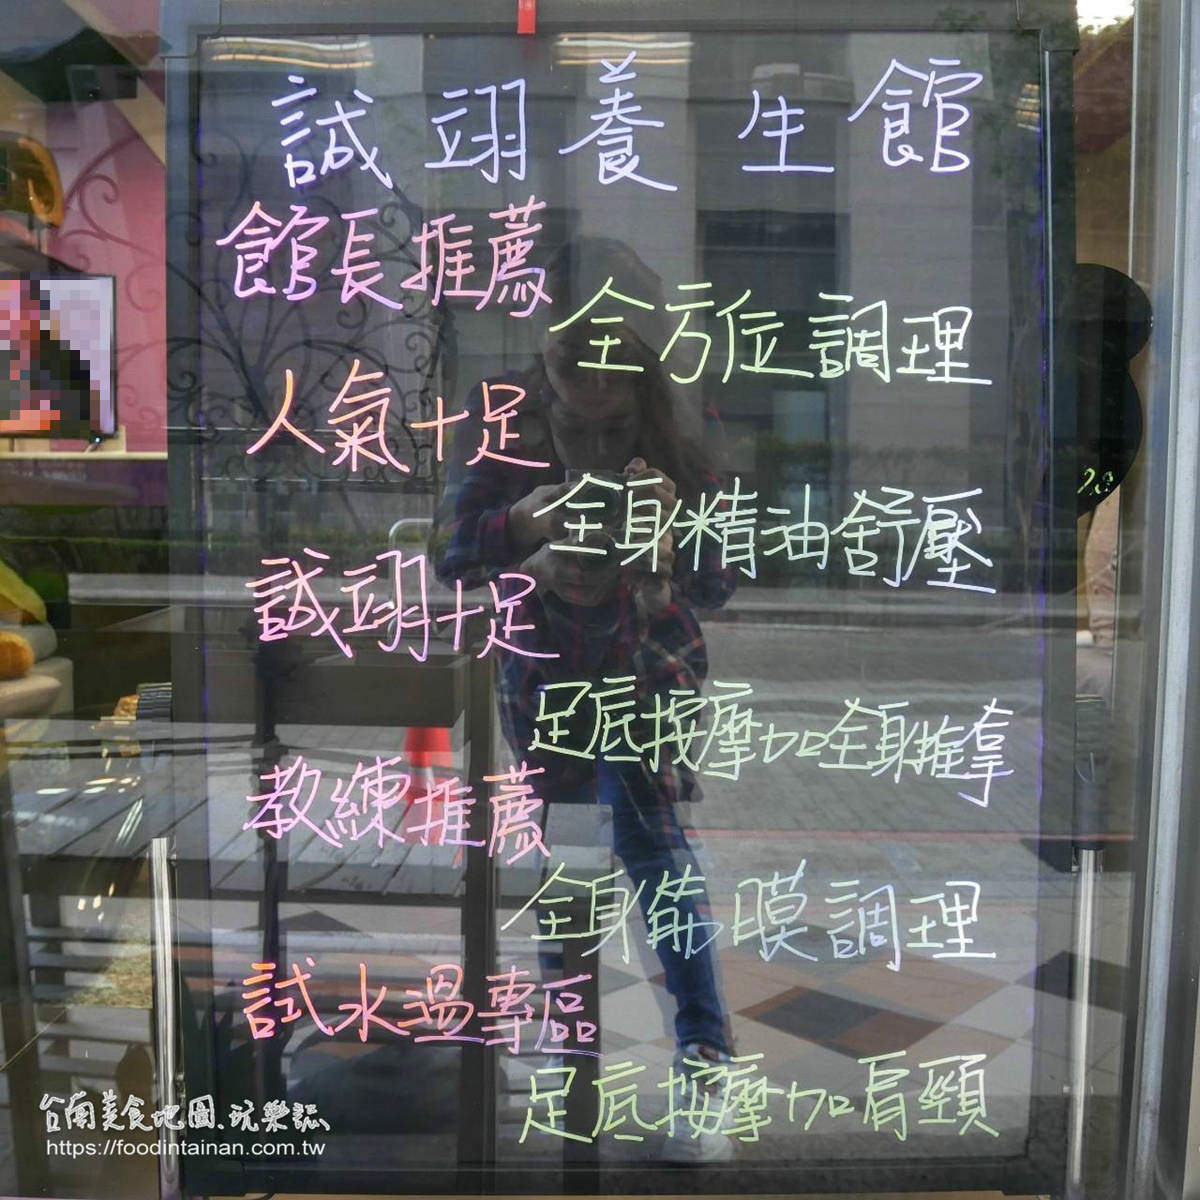 誠翊養生館
館長推薦
全方位調理
人氣十足
全身精油舒壓
誠翊十足
足底按摩加全身推拿
教練推薦
全身筋膜調理
試水溫專區
足底按摩加肩頸
台南美食地圖.玩樂誌
https://foodintainan.com.tw